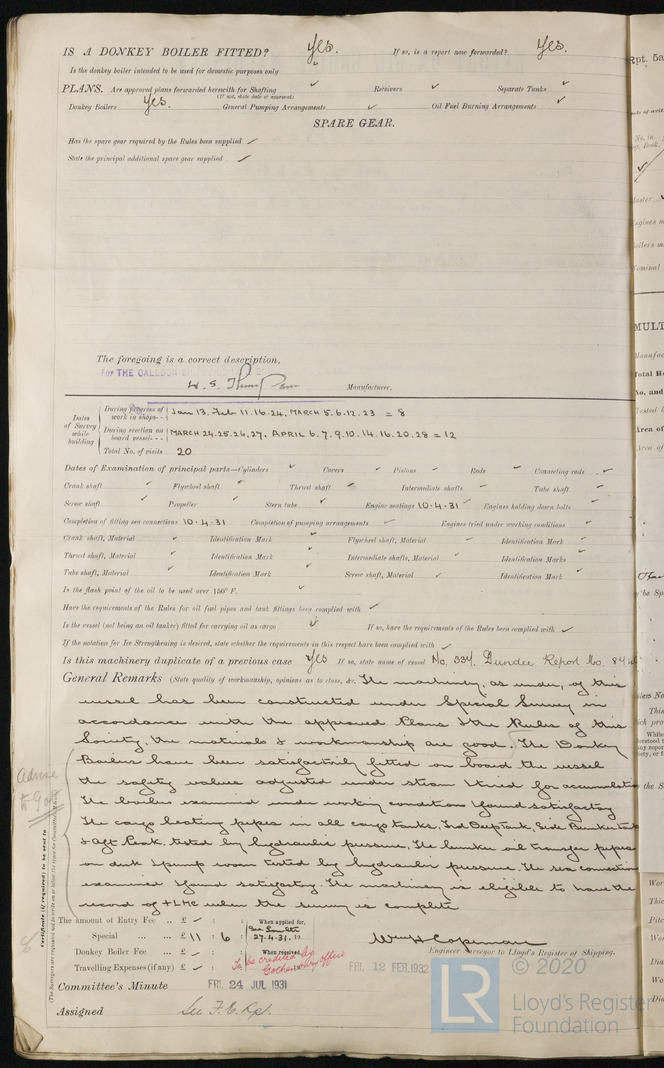 IS A DONKEY BOILER FITTED? Yes. If so, is a report now forwarded? Yes.
Is the donkey boiler intended to be used for domestic purposes only
PLANS. Are approved plans forwarded herewith for Shafting ✓ Receivers ✓ Separate Tanks ✓
(If not, state date of approval)
Donkey Boilers Yes. General Pumping Arrangements ✓ Oil Fuel Burning Arrangements ✓
SPARE GEAR.
Has the spare gear required by the Rules been supplied ✓
State the principal additional spare gear supplied ✓
The foregoing is a correct description,
For THE CALEDON
Manufacturer.
Dates of Survey while building
During progress of work in shops - - Jan 13, Feb 11.16.24, MARCH 5.6.12.23 = 8
During erection on board vessel - - - MARCH 24.25.26,27, APRIL 6.7.9.10.14.16.20.28 = 12
Total No. of visits 20
Dates of Examination of principal parts—Cylinders ✓ Covers ✓ Pistons ✓ Rods ✓ Connecting rods ✓
Crank shaft ✓ Flywheel shaft ✓ Thrust shaft ✓ Intermediate shafts ✓ Tube shaft ✓
Screw shaft ✓ Propeller ✓ Stern tube ✓ Engine seatings 10.4.31 Engines holding down bolts ✓
Completion of fitting sea connections 10.4.31 Completion of pumping arrangements ✓ Engines tried under working conditions ✓
Crank shaft, Material ✓ Identification Mark ✓ Flywheel shaft, Material ✓ Identification Mark ✓
Thrust shaft, Material ✓ Identification Mark ✓ Intermediate shafts, Material ✓ Identification Marks ✓
Tube shaft, Material ✓ Identification Mark ✓ Screw shaft, Material ✓ Identification Mark ✓
Is the flash point of the oil to be used over 150° F. ✓
Have the requirements of the Rules for oil fuel pipes and tank fittings been complied with ✓
Is the vessel (not being an oil tanker) fitted for carrying oil as cargo ✓ If so, have the requirements of the Rules been complied with ✓
If the notation for Ice Strengthening is desired, state whether the requirements in this respect have been complied with ✓
Is this machinery duplicate of a previous case Yes If so, state name of vessel No. 334. Dundee Report No.
General Remarks (State quality of workmanship, opinions as to class, &c. The machinery, as under, of this
vessel has been constructed under Special Survey in
accordance with the approved Plans & the Rules of this
Society, the materials & workmanship are good. The Donkey
Boilers have been satisfactorily fitted on board the vessel
the safety valves adjusted under steam & tried for accumulation
The boilers examined under working conditions & found satisfactory
The cargo heating pipes in all cargo tanks, Fwd Deep Tank, Side Bunker tanks
& Aft Peak, tested by hydraulic pressure. The bunker oil transfer pipes
on deck & pump room tested by hydraulic pressure. The sea connections
examined & found satisfactory. The machinery is eligible to have the
record of +LMC when the survey is complete
Certificate (if required) to be sent to
The amount of Entry Fee .. £ ✓ : When applied for,
Special ... ... £ 11 : 6 : 27.4.31.
Donkey Boiler Fee ... £ ✓ : When received,
Travelling Expenses (if any) £ ✓ :
To be credited by Gothenburg office
Wm H Copeman
Engineer Surveyor to Lloyd's Register of Shipping.
FRI. 12 FEB 1932
Committee's Minute FRI. 24 JUL 1931
Assigned See F.E. Rpt.
LR © 2020
Lloyd's Register
Foundation
Rpt. 5a
MULT